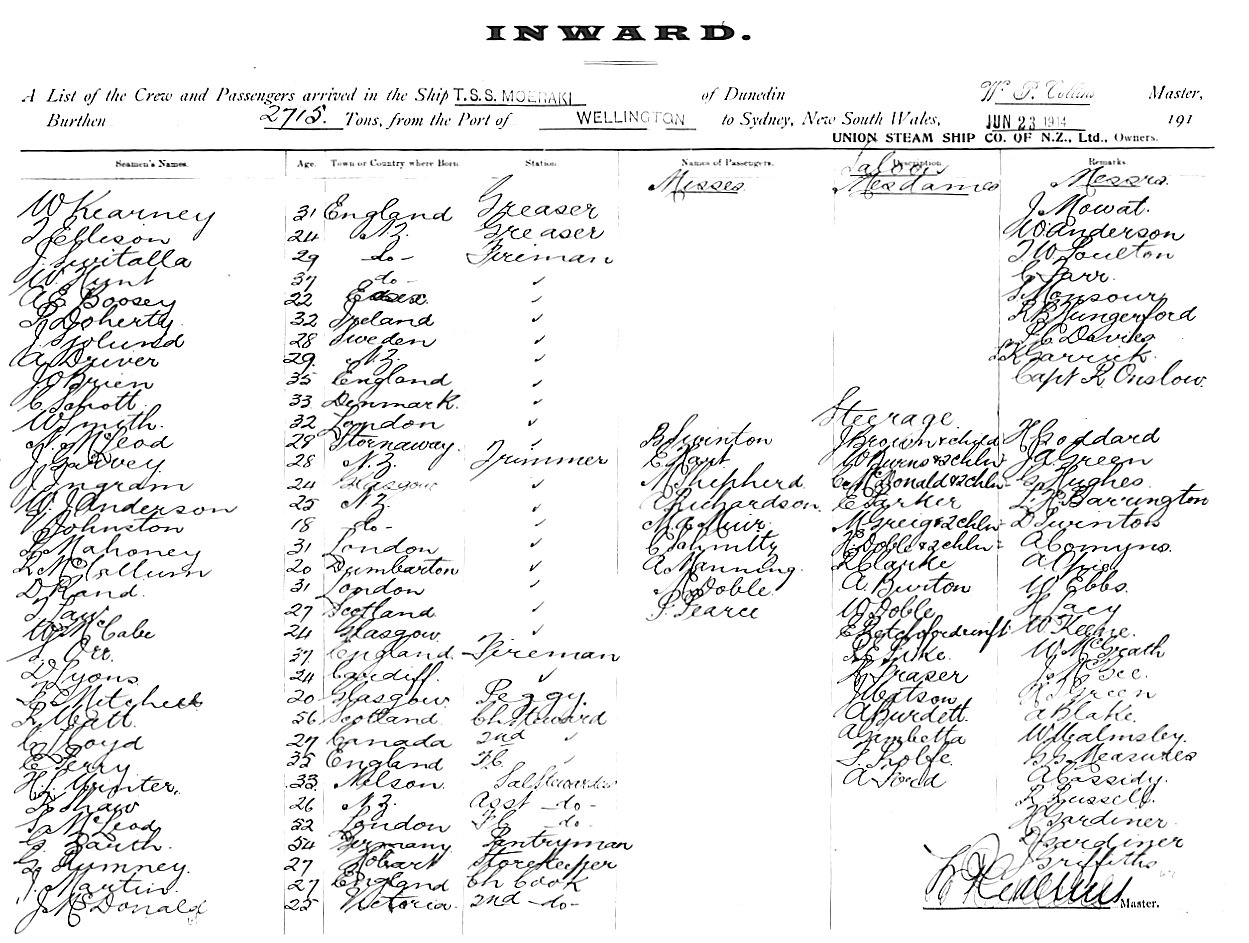 INWARD.
A List of the Crew and Passengers arrived in the Ship T.S.S. MOERAKI of Dunedin W. P. Collins Master,
Burthen 2715. Tons, from the Port of WELLINGTON to Sydney, New South Wales, JUN 23 1914 191
UNION STEAM SHIP CO. OF N.Z., Ltd., Owners.
Seamen's Names. Age. Town or Country where Born Station. Names of Passengers. Description. Remarks.
Saloon
Misses Mesdames Messrs.
W Kearney 31 England Greaser J Mowat.
T Ellison 24 N.Z. Greaser W Anderson
J Switalla 29 -do- Fireman T W Poulton
W Hunt 37 do - ✓ C Farr.
A E Boosey 22 Essex ✓ S Monsour
R Doherty. 32 Ireland ✓ R B Hungerford
J Sjolund 28 Sweden ✓ P C Davies
A Driver 29 N.Z. ✓ Garrick.
J O'Brien 35 England ✓ Capt R Onslow.
C Schott 33 Denmark. ✓
Steerage
W Smith. 32 London ✓
N. McLeod 28 Stornaway. ✓ B Swinton J Brown & child H Goddard
J Garvey 28 N.Z. Trimmer E Hart W Burns & 2 chln J A Green
J Ingram 24 Glasgow ✓ M Shepherd C McDonald & 2 chln G Hughes.
W. J Anderson 25 N.Z. ✓ A Richardson. E Parker L K Barrington
W Johnston 18 -do- ✓ M C Muir. M Greig & 2 chln D Swinton
J Mahoney 31 London ✓ C Schmitty H Doble & 2 chln A Comyns.
R McCollum 20 Dumbarton ✓ A Manning. R Clarke A
D Rand. 31 London ✓ Doble A Burton W Ebbs.
T Law 27 Scotland ✓ P Pearce W Doble H Lacy
W McCabe 24 Glasgow ✓ E W Keene.
S. Orr. 37 England. Fireman R E Luke. W McGrath
D Lyons 24 Cardiff. ✓ K Fraser J McGee.
R Mitchell 20 Glasgow Peggy J Watson R S Green
R Watt. 56 Scotland Ch Steward A Burdett. A Blake.
C Lloyd 27 Canada 2nd ✓ A Gambetta W Walmsley.
E Terry 35 England F.C. F. Rolfe. Measures
H. S. Winter. 33 Nelson. Sal Stewardess A Ford A Cassidy.
R Shaw 26 N.Z. Asst -do- R Russell.
S. McLeod 52 London F C -do- H Gardiner.
G. Bauth. 54 Germany Pantryman D Gardiner
G. Rumney. 27 Hobart Storekeeper J Griffiths
J. Martin. 27 England Ch Cook
J McDonald 25 Victoria 2nd -do-
Master.